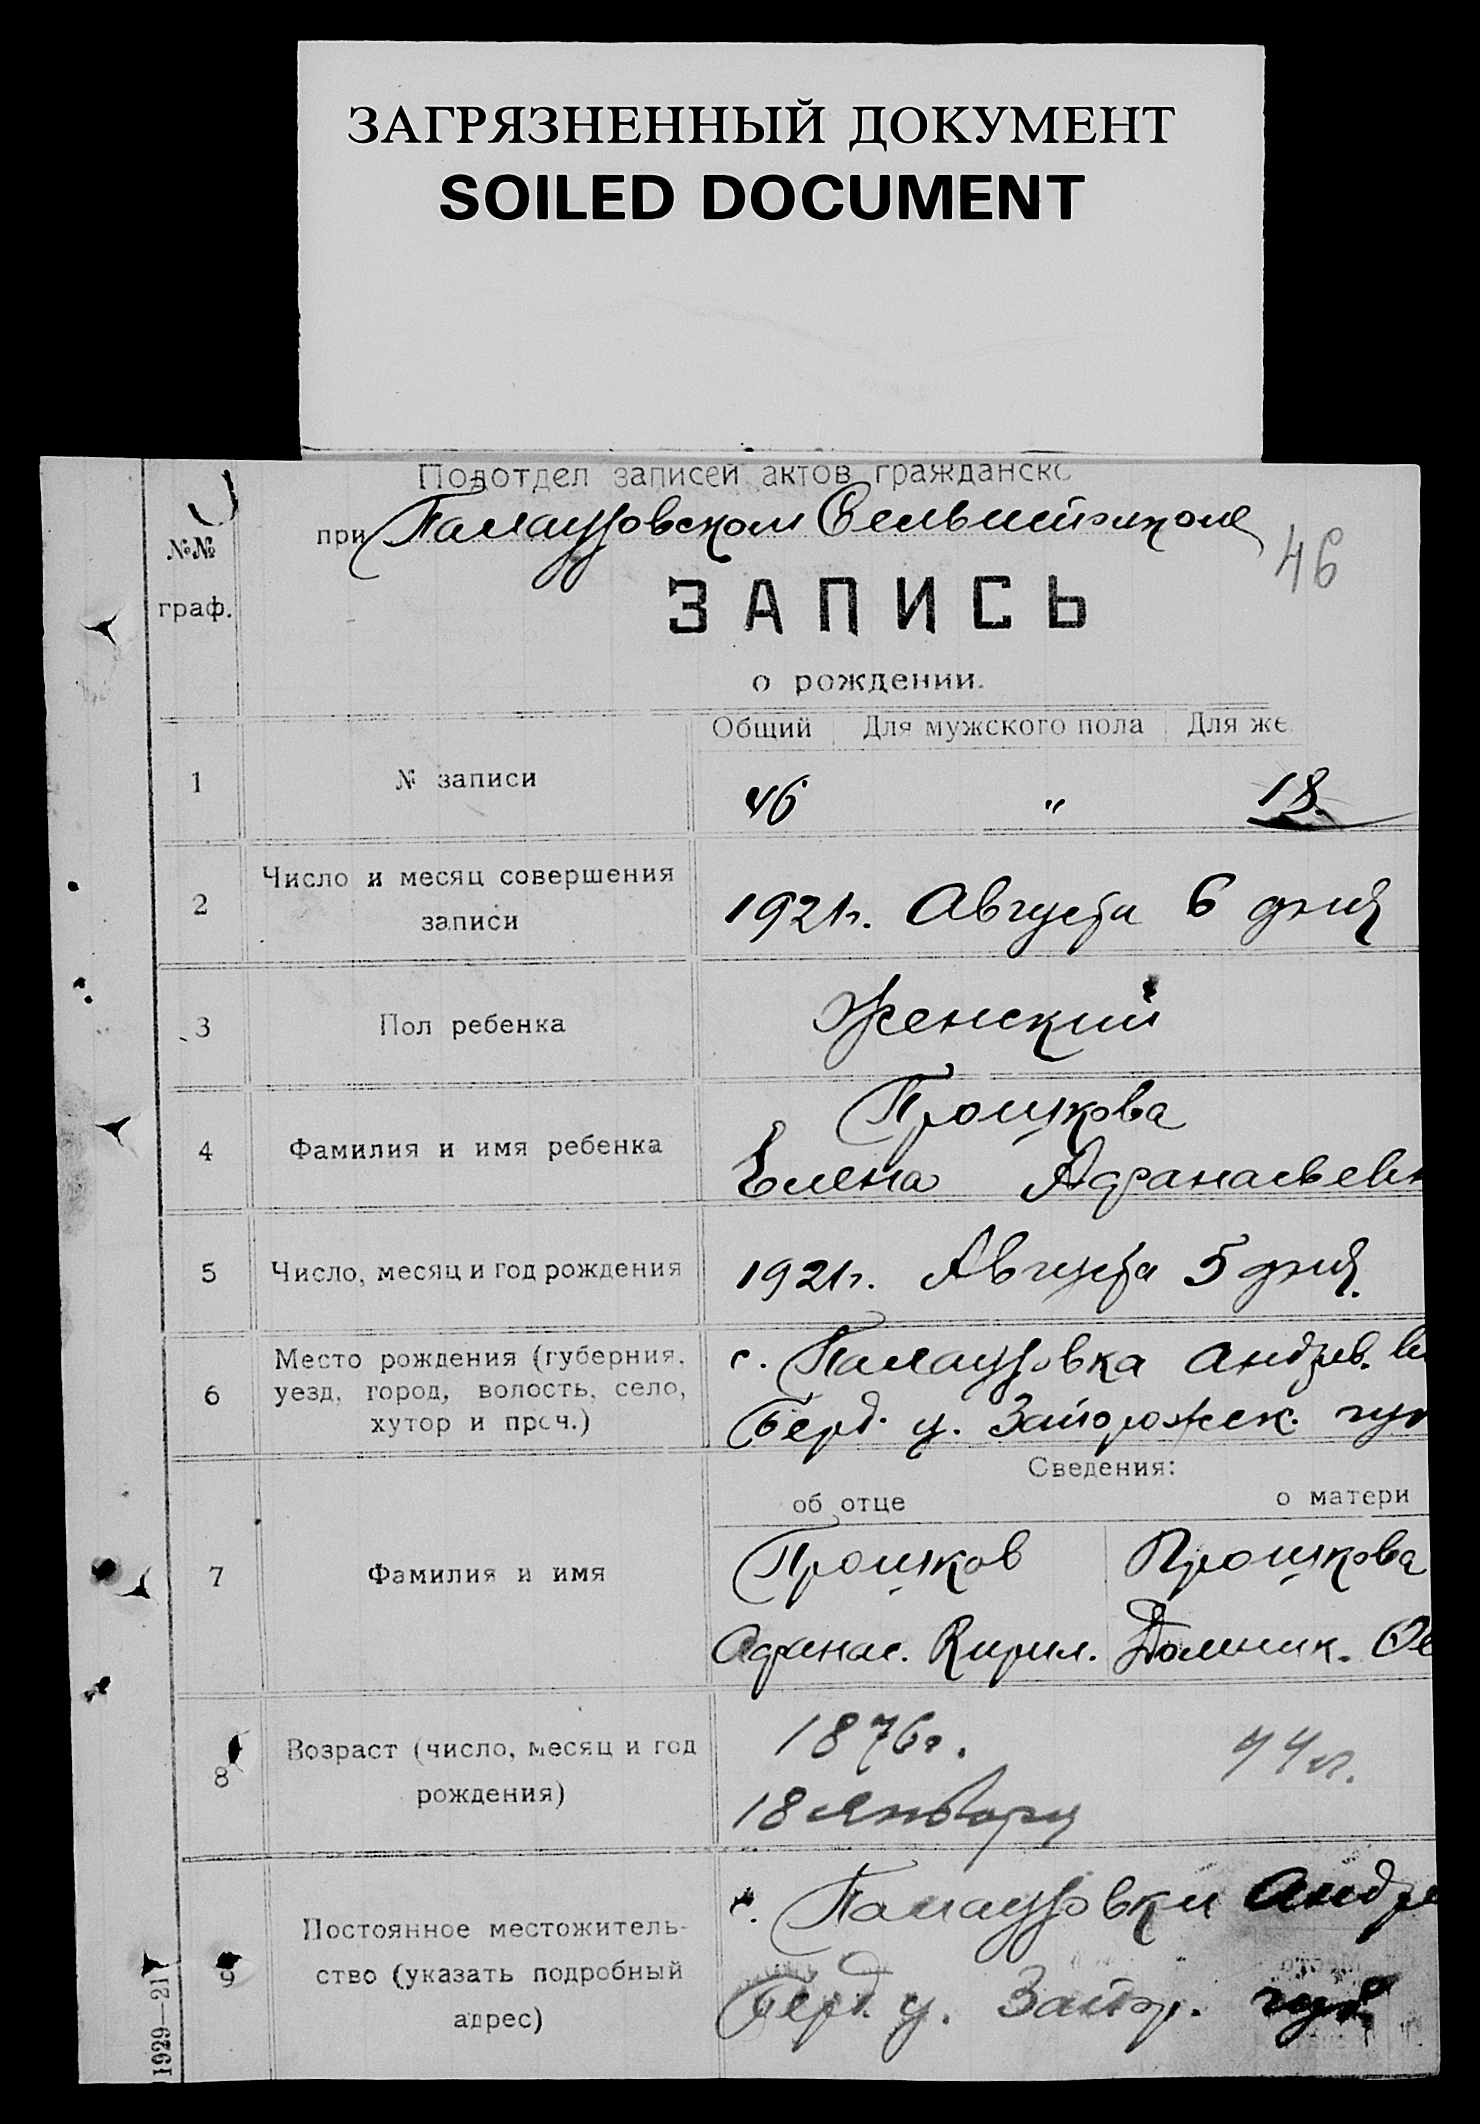 ЗАГРЯЗНЕННЫЙ ДОКУМЕНТ
SOILED DOCUMENT
Подотдел записей актов гражданско
№№
граф.
при
46
ЗАПИСЬ
о рождении.
Общий Для мужского пола Для же
1 № записи 46 " 18.
2 Число и месяц совершения
записи
1921г. Августа 6 дня
3 Пол ребенка Женский
4 Фамилия и имя ребенка
Прошкова
Елена Афанасьевн
5 Число, месяц и год рождения 1921г. Августа 5 дня.
6 Место рождения (губерния,
уезд, город, волость, село,
хутор и проч.)
с. Андрев.
Берд. у. Запорожск. губ
Сведения:
об отце о матери
7 Фамилия и имя
Прошков Прошкова
Афанас. Кирил. Домник.
8 Возраст (число, месяц и год
рождения)
1876г. 44 л.
18 Января
9 Постоянное местожитель-
ство (указать подробный
адрес)
с. Андре
Берд. у. Запор. губ
1929—21